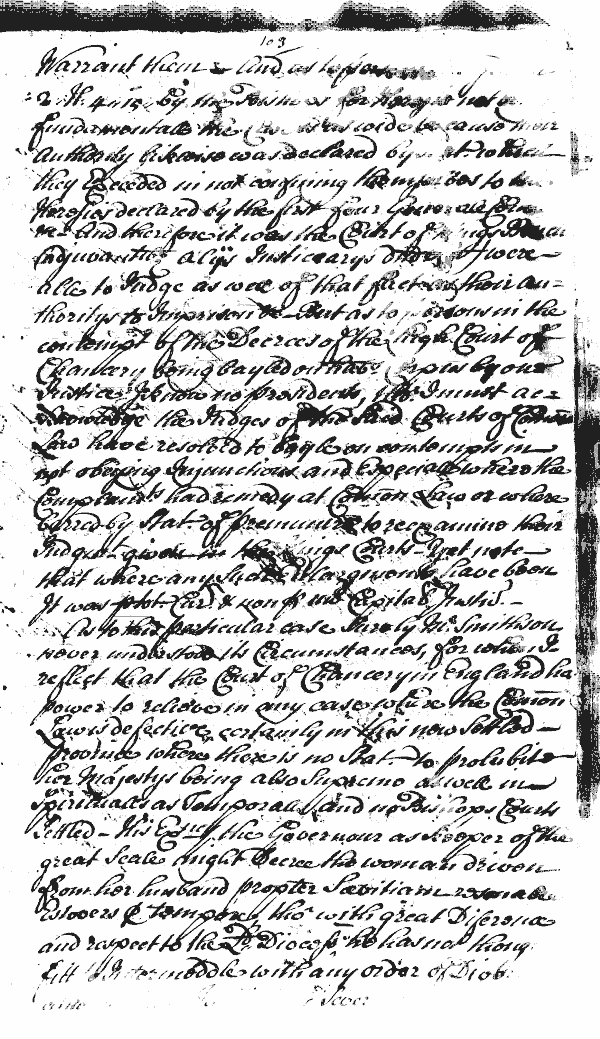 103
Warrant them - And as to
2. H. 4. 15. by the
fundamentall the because their
Authority likewise was declared by
they Exceeded in not confining themselves to
Heresies declared by the first four Generall
And therefore it was the Court of Kings Bench
adjuvantibus alijs Justiciarijs were
able to Judge as well of that fact as their au=
thoritys to Imprison &c - But as to persons in the
contempt of the Decrees of the high Court of
Chancery being bayled on habeas Corpus by our
Justices I know no presidents, I must ac=
knowledge the Judges of the said Courts of Comon
Law have resolved to bayle on contempts in
not obeying Injunctions and Especially where the
Complainants had remedy at Comon Law or where
barred by Stat of premunire to reexamine their
Judgmts given in the Kings Courts - Yet note
that where any such Enlargements have been
It was
As to this particular case Surely Mr Smithson
never understood its Circumstances, for when I
reflect that the Court of Chancery in England ha
power to relieve in any case where the Comon
Law is defective, certainly in this new settled
Province where there is no Stat - to prohibit
her Majestys being also Supreme as well in
spirituall as Temporall, and no Bishops Courts
Settled - His Excy the Governour as Keeper of the
great Seale might Decree the woman driven
from her husband propter Sævitiam
Estovers tho' with great Diference
and respect to the he has not
fitt to Intermeddle with any order of